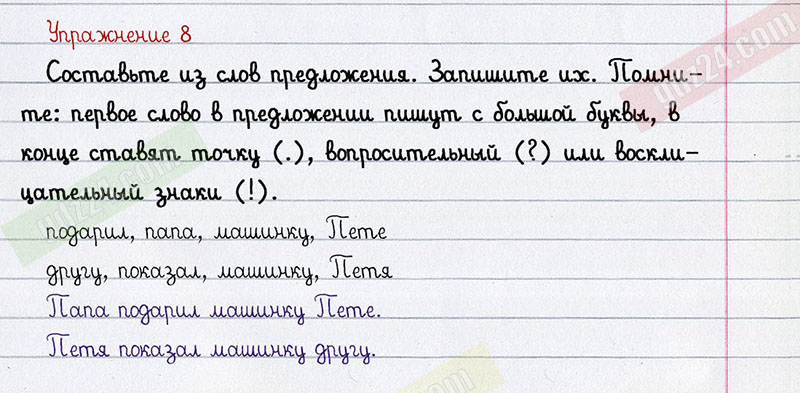 Упражнение 8
Составьте из слов предложения. Запишите их. Помни-
те: первое слово в предложении пишут с большой буквы, в
конце ставят точку (.), вопросительный (?) или воскли-
цательный знаки (!).
подарил, папа, машинку, Пете
другу, показал, машинку, Петя
Папа подарил машинку Пете.
Петя показал машинку другу.